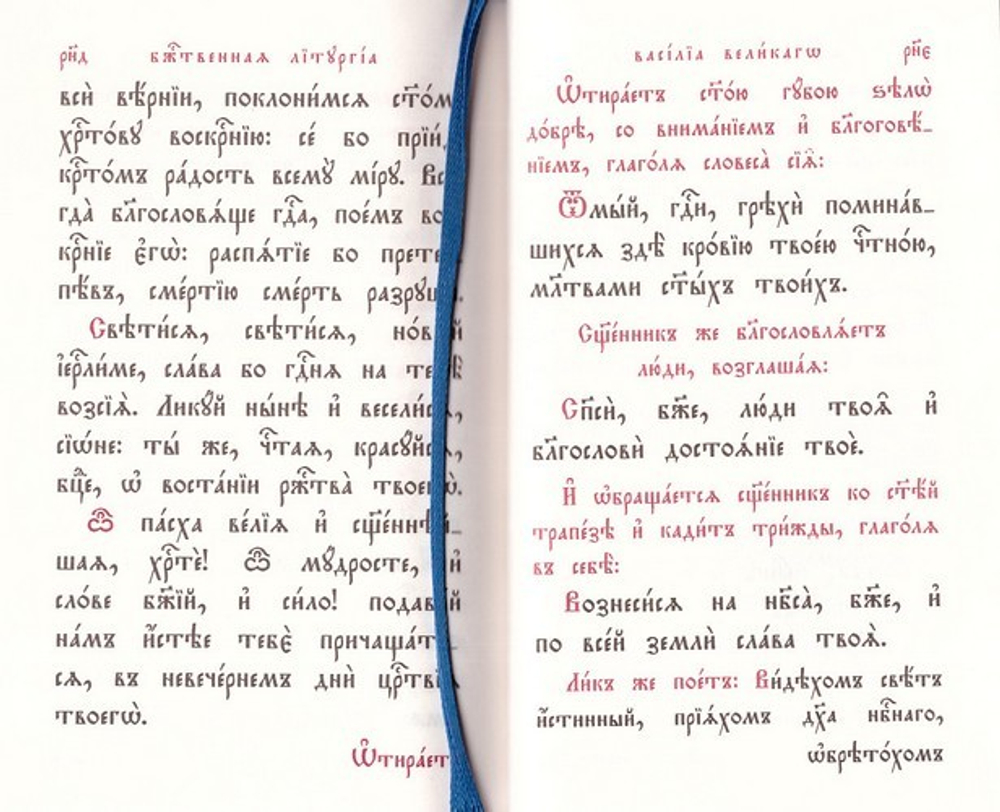 рн҃д бж҃твенная лїтꙋргі́а
всѝ вѣ́рнїи, поклони́мсѧ
хрⷭ҇то́вꙋ воскрⷭ҇нїю: сѐ бо
крⷭ҇то́мъ ра́дость всемꙋ̀ мі́рꙋ.
гда̀ бл҃гословѧ́ще гдⷭ҇а, пое́мъ
крⷭ҇нїе є҆гѡ̀: распѧ́тїе бо
пѣ́въ, сме́ртїю сме́рть
Свѣти́сѧ, свѣти́сѧ,
і҆ерⷭ҇ли́ме, сла́ва бо гдⷭ҇нѧ на
возсїѧ̀. Ликꙋ́й ны́нѣ и҆
сїѡ́не: ты́ же, чⷭ҇таѧ,
бц҃е, ѡ҆ воста́нїи рж҇тва̀
Ѽ па́сха ве́лїѧ и҆
шаѧ, хрⷭ҇тѐ! ѽ мꙋ́дросте, и҆
сло́ве бж҃їй, и҆ си́ло!
на́мъ и҆́стѣе тебє̀
сѧ, въ невече́рнемъ днѝ
твоегѡ̀.
васі́лїа вели́кагѡ рн҃є
Ѡ҆тира́етъ ст҃о́ю гꙋбою ѕѣлѡ̀
до́брѣ, со внима́нїемъ и҆ бл҃гоговѣ́_
нїемъ, глаго́лѧ словеса̀ сїѧ̑:
Ѿмы́й, гдⷭ҇и, грѣхѝ помина́в_
шихсѧ здѣ̀ кро́вїю твое́ю чⷭ҇тно́ю,
мл҃твами ст҃ы́хъ твои́хъ.
Сщ҃е́нникъ же бл҃гословлѧ́етъ
лю́ди, возглаша́ѧ:
Сп҃сѝ, бж҃е, лю́ди твоѧ̑ и҆
бл҃гословѝ достоѧ́нїе твоѐ.
И҆ ѡ҆браща́етсѧ сщ҃е́нникъ ко ст҃ѣ́й
трапе́зѣ и҆ кади́тъ три́жды, глаго́лѧ
въ себѣ̀:
Вознеси́сѧ на нб҃са̀, бж҃е, и҆
по все́й землѝ сла́ва твоѧ̀.
Ли́къ же пое́тъ: Ви́дѣхомъ свѣ́тъ
и҆́стинный, прїѧ́хомъ дх҃а нбⷭ҇наго,
ѡ҆брѣто́хомъ